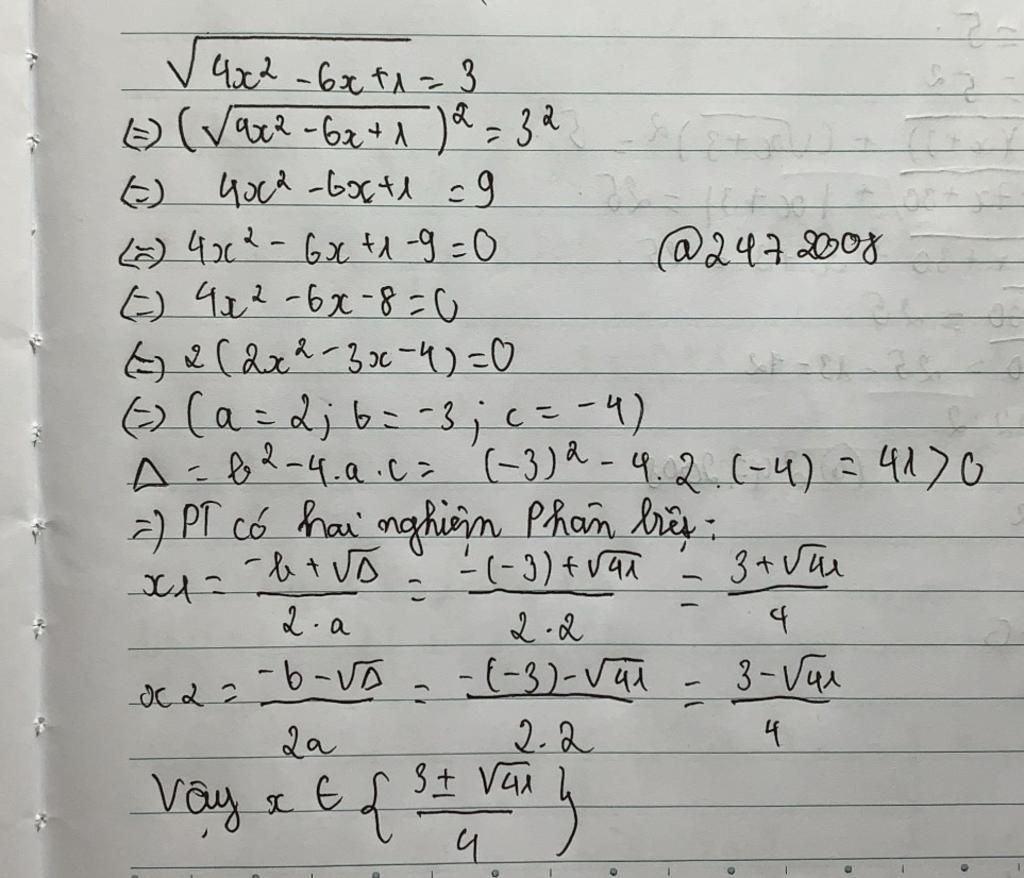 √(4x² - 6x + 1) = 3
(=) (√(4x² - 6x + 1))² = 3²
(=) 4x² - 6x + 1 = 9
(=) 4x² - 6x + 1 - 9 = 0 @2472008
(=) 4x² - 6x - 8 = 0
(=) 2(2x² - 3x - 4) = 0
(=) (a = 2; b = -3; c = -4)
Δ = b² - 4.a.c = (-3)² - 4.2.(-4) = 41 > 0
=) PT có hai nghiệm phân biệt:
x1 = (-b + √Δ)/(2.a) = (-(-3) + √41)/(2.2) = (3 + √41)/4
x2 = (-b - √Δ)/(2a) = (-(-3) - √41)/(2.2) = (3 - √41)/4
Vậy x ∈ {(3 ± √41)/4}